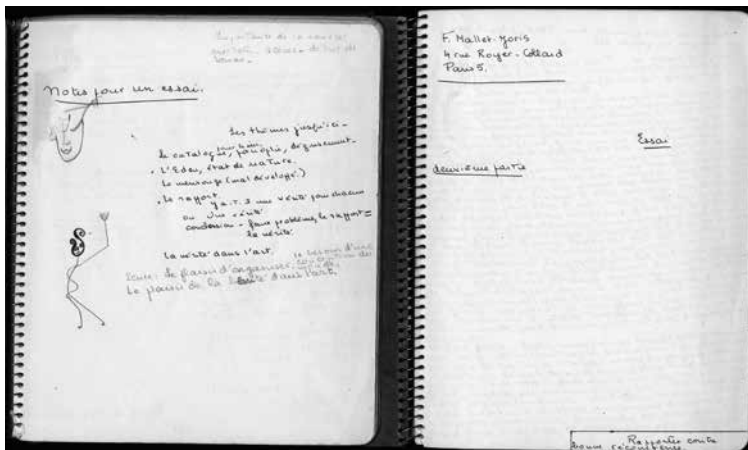 Notes pour un essai.
Les thèmes jusqu'ici -
le catalogue, panoplie, déguisement -
. L'Eden, état de nature.
Le mensonge (mal développé.)
. Le rapport
y a-t-il une vérité pour chacun
ou une vérité
conclusion - faux problème, le rapport =
la vérité.
La vérité dans l'art.
le besoin d'une
le plaisir d'organiser,
Le plaisir de la dans l'art.
F. Mallet-Joris
4 rue Royer-Collard
Paris 5.
Essai
deuxième partie
Rapporter contre
bonne récompense.